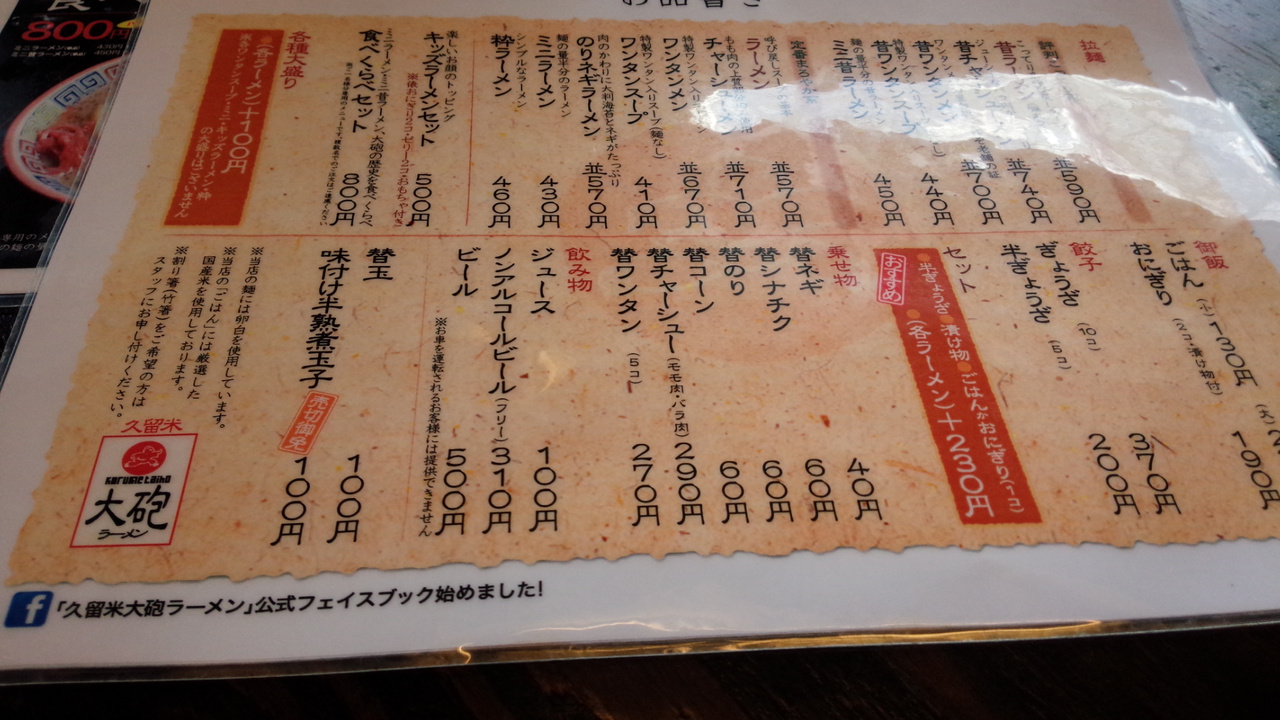 お品書き
拉麺
昔ラーメン
並590円
並740円
昔チャーシューメン
並700円
昔ワンタンメン
440円
昔ワンタンスープ
450円
ミニ昔ラーメン
呼び戻しスープ
ラーメン
並570円
チャーシューメン
並710円
特製ワンタン入り
ワンタンメン
並670円
特製ワンタン入りスープ(麺なし)
ワンタンスープ
410円
肉のかわりに大判海苔とネギがたっぷり
のりネギラーメン
並570円
麺の量半分のラーメン
ミニラーメン
430円
シンプルなラーメン
粋ラーメン
460円
楽しいお顔のトッピング
キッズラーメンセット
※後おにぎり2コ・ゼリー2コ・おもちゃ付き
500円
ミニラーメン・ミニ昔ラーメン、大砲の歴史を食べくらべ
食べくらべセット
800円
各種大盛り
(各ラーメン)+100円
御飯
ごはん
(小)130円
(大)190円
おにぎり
(2コ・漬け物付)
餃子
ぎょうざ
(10コ)
370円
半ぎょうざ
(5コ)
200円
セット
おすすめ
●半ぎょうざ●漬け物●ごはんかおにぎり(1コ)
●(各ラーメン)+230円
乗せ物
替ネギ
40円
替シナチク
60円
替のり
60円
替コーン
60円
替チャーシュー(モモ肉・バラ肉)
290円
替ワンタン(5コ)
270円
飲み物
ジュース
100円
ノンアルコールビール(フリー)
310円
ビール
500円
※お車を運転されるお客様には提供できません
替玉
100円
味付け半熟煮玉子
売切御免
100円
※当店の麺には卵白を使用しています。
※当店の「ごはん」には厳選した
国産米を使用しております。
※割り箸(竹箸)をご希望の方は
スタッフにお申し付けください。
久留米
kurume taiho
大砲
ラーメン
f「久留米大砲ラーメン」公式フェイスブック始めました!
800円
ミニラーメン
430円
ミニ昔ラーメン
450円